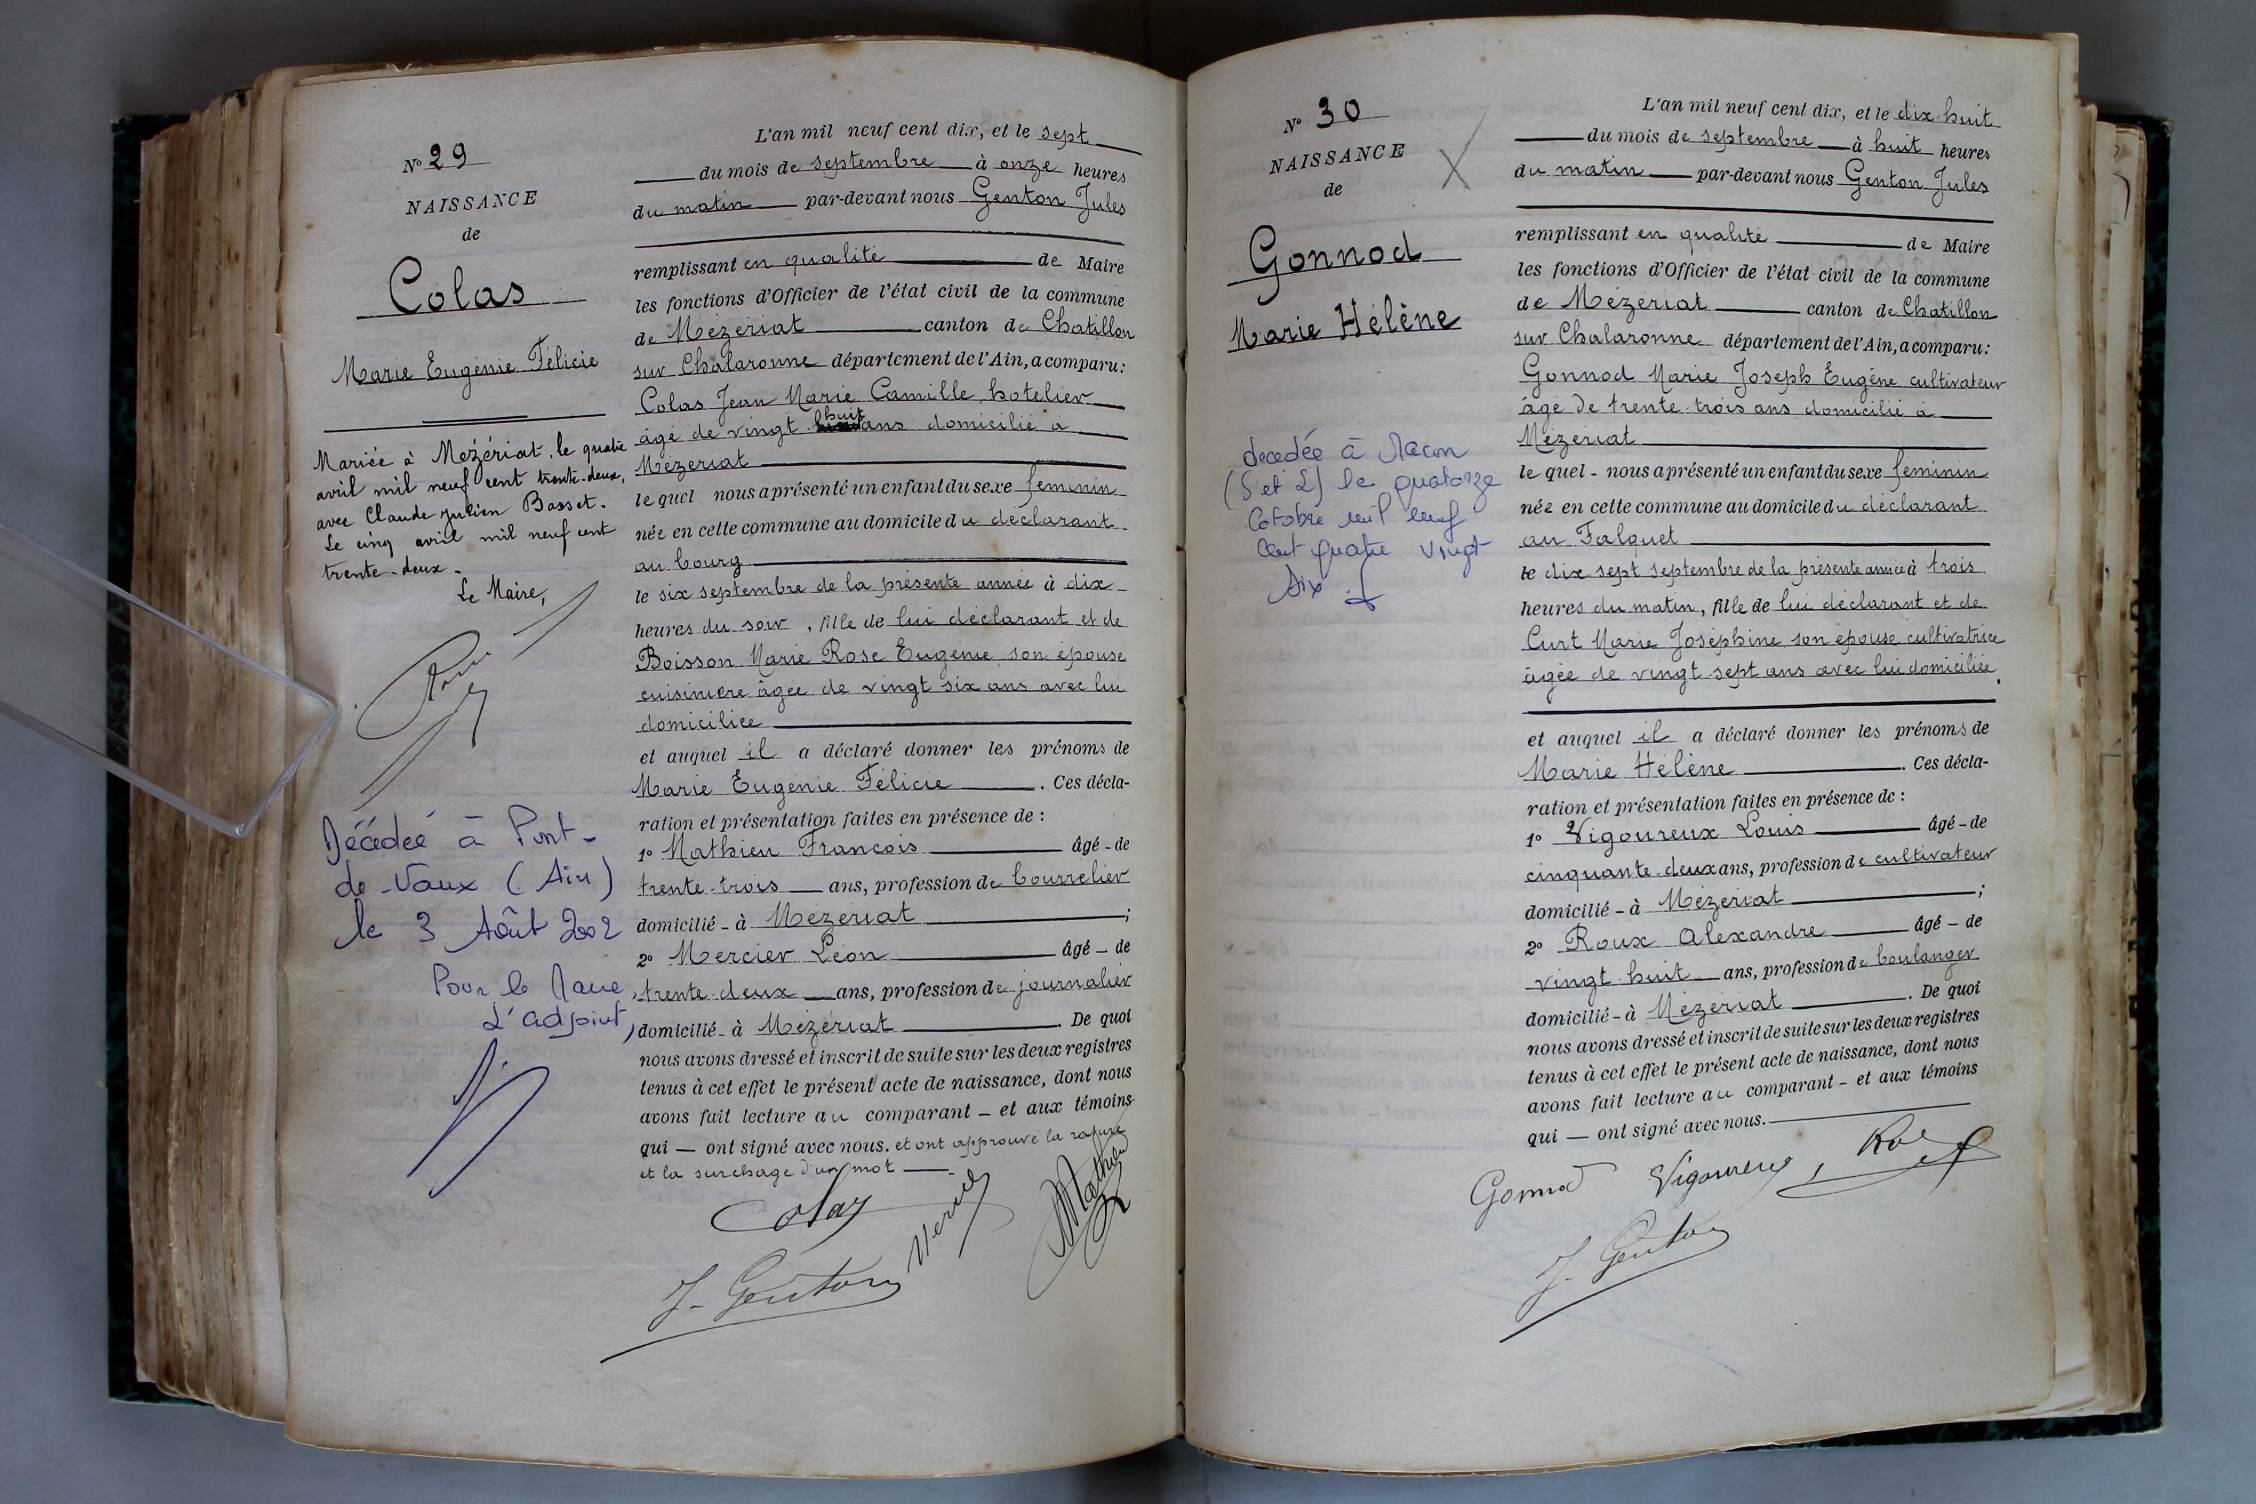 N° 29
NAISSANCE
de
Colas
Marie Eugénie Félicie
Mariée à Mézériat, le quatre
avril mil neuf cent trente-deux,
avec Claude Julien Basset.
Le cinq avril mil neuf cent
trente-deux.
Le Maire,
Décédée à Pont-
de-Vaux (Ain)
le 3 Août 2002
Pour le Maire,
L'adjoint,
L'an mil neuf cent dix, et le sept
du mois de septembre à onze heures
du matin par-devant nous Genton Jules
remplissant en qualité de Maire
les fonctions d'Officier de l'état civil de la commune
de Mézériat canton de Chatillon
sur Chalaronne département de l'Ain, a comparu:
Colas Jean Marie Camille hotelier
âgé de vingt huit ans domicilié à
Mézériat
le quel nous a présenté un enfant du sexe féminin
née en cette commune au domicile du déclarant
au bourg
le six septembre de la présente année à dix
heures du soir, fille de lui déclarant et de
Boisson Marie Rose Eugénie son épouse
cuisinière âgée de vingt six ans avec lui
domiciliée
et auquel il a déclaré donner les prénoms de
Marie Eugénie Félicie. Ces décla-
ration et présentation faites en présence de :
1° Mathieu François âgé - de
trente-trois ans, profession de bourrelier
domicilié - à Mézériat ;
2° Mercier Léon âgé - de
trente-deux ans, profession de journalier
domicilié - à Mézériat. De quoi
nous avons dressé et inscrit de suite sur les deux registres
tenus à cet effet le présent acte de naissance, dont nous
avons fait lecture au comparant - et aux témoins
qui — ont signé avec nous. et ont approuvé la rature
et la surchage d'un mot —.
Colas
Mercier
Mathieu
J. Genton
N° 30
NAISSANCE
de
Gonnod
Marie Hélène
decedée à Macon
(S et L) le quatorze
Octobre mil neuf
cent quatre vingt
six
L'an mil neuf cent dix, et le dix-huit
du mois de septembre à huit heures
du matin par-devant nous Genton Jules
remplissant en qualité de Maire
les fonctions d'Officier de l'état civil de la commune
de Mézériat canton de Chatillon
sur Chalaronne département de l'Ain, a comparu:
Gonnod Marie Joseph Eugène cultivateur
âgé de trente-trois ans domicilié à
Mézériat
le quel - nous a présenté un enfant du sexe féminin
née en cette commune au domicile du déclarant
au Falquet
le dix sept septembre de la présente année à trois
heures du matin, fille de lui déclarant et de
Curt Marie Joséphine son épouse cultivatrice
âgée de vingt-sept ans avec lui domiciliée.
et auquel il a déclaré donner les prénoms de
Marie Hélène. Ces décla-
ration et présentation faites en présence de :
1° Vigoureux Louis âgé - de
cinquante-deux ans, profession de cultivateur
domicilié - à Mézériat ;
2° Roux Alexandre âgé - de
vingt huit ans, profession de boulanger
domicilié - à Mézériat. De quoi
nous avons dressé et inscrit de suite sur les deux registres
tenus à cet effet le présent acte de naissance, dont nous
avons fait lecture au comparant - et aux témoins
qui — ont signé avec nous.
Gonnod Vigoureux, Roux
J. Genton